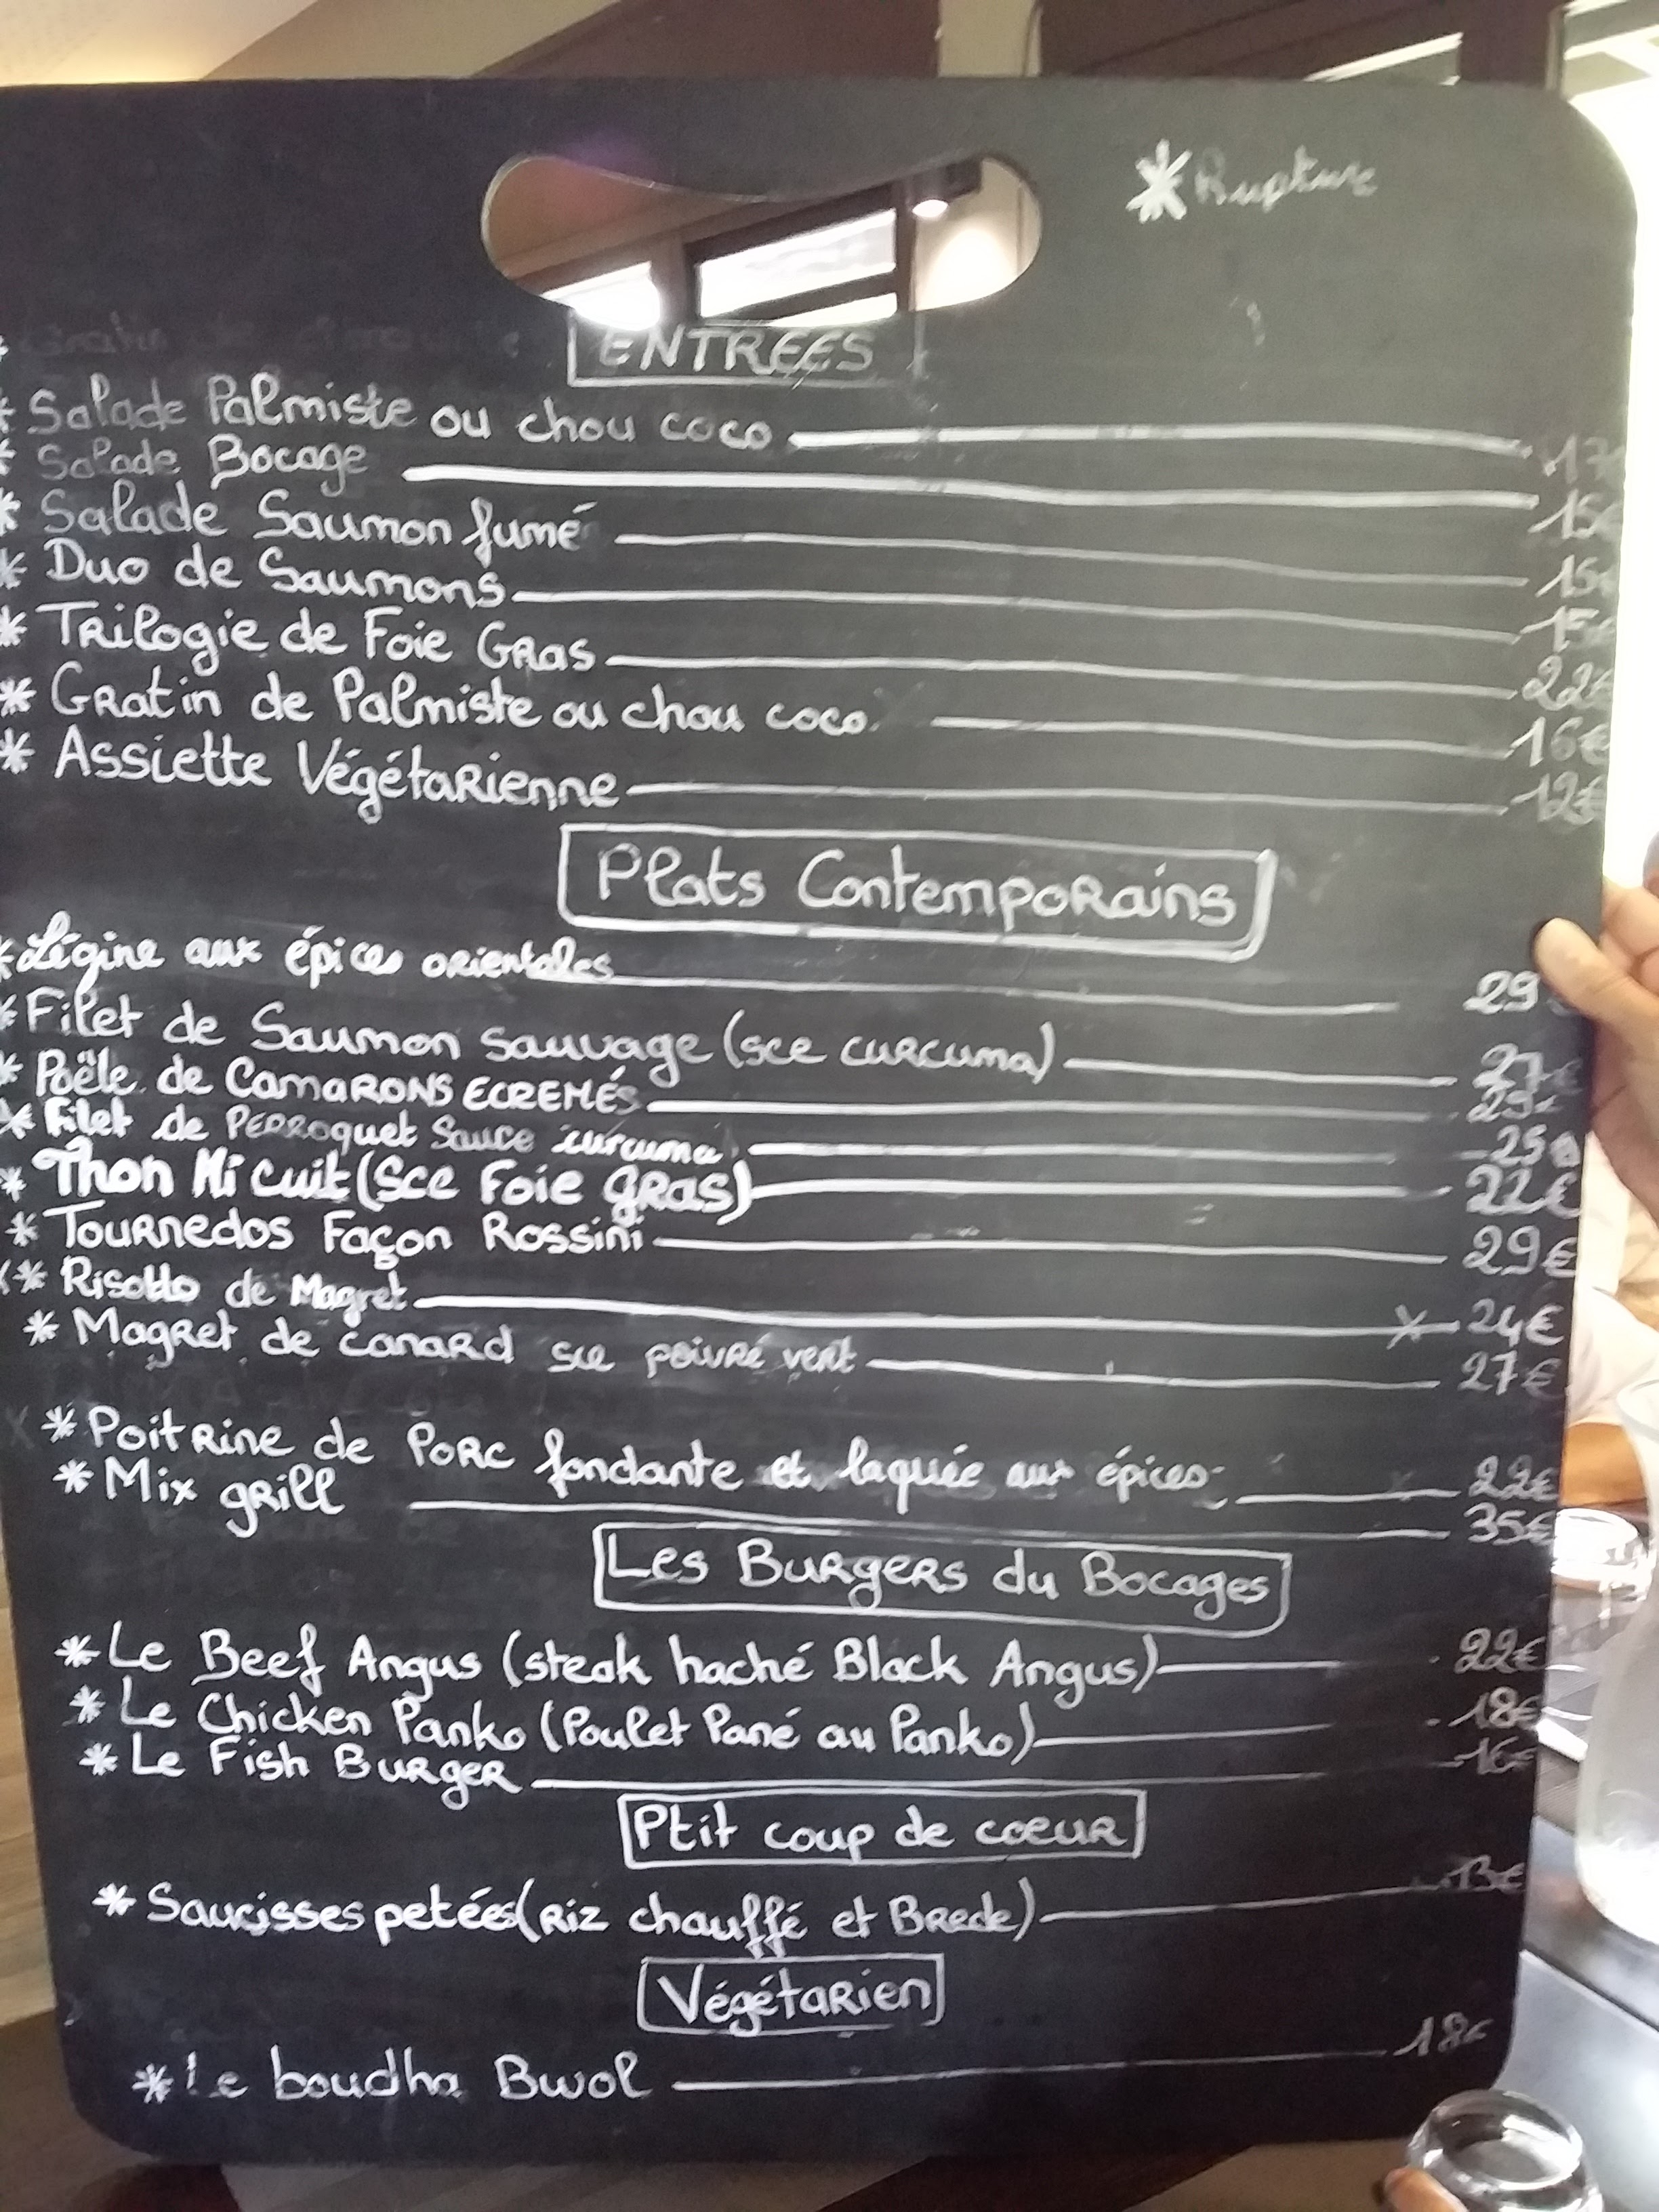 * Rupture
ENTREES
* Salade Palmiste ou chou coco 17€
* Salade Bocage 15€
* Salade Saumon fumé 15€
* Duo de Saumons 15€
* Trilogie de Foie Gras 22€
* Gratin de Palmiste ou chou coco 16€
* Assiette Végétarienne 12€
Plats Contemporains
* Légine aux épices orientales 29€
* Filet de Saumon Sauvage (sce curcuma) 27€
* Poële de Camarons ECREMÉS 29€
* Filet de Perroquet Sauce curcuma 25
* Thon Mi cuit (Sce Foie gras) 22€
* Tournedos Façon Rossini 29€
* Risotto de Magret 24€
* Magret de canard sce poivre vert 27€
* Poitrine de Porc fondante et laquée aux épices 22€
* Mix grill 35€
Les Burgers du Bocages
* Le Beef Angus (steak haché Black Angus) 22€
* Le Chicken Panko (Poulet Pané au Panko) 18€
* Le Fish Burger 16€
Ptit coup de coeur
* Saucisses petées (Riz chauffé et Brede) 13€
Végétarien
* Le boudha Bwol 18€